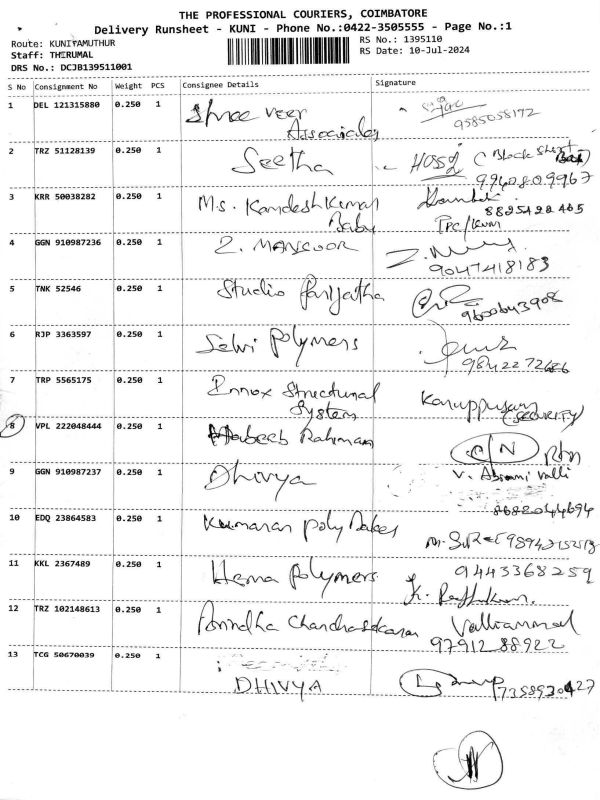 THE PROFESSIONAL COURIERS, COIMBATORE
Delivery Runsheet - KUNI - Phone No.:0422-3505555 - Page No.:1
Route: KUNIYAMUTHUR
Staff: THIRUMAL
DRS No.: DCJB139511001
RS No.: 1395110
RS Date: 10-Jul-2024
S No Consignment No Weight PCS Consignee Details Signature
1 DEL 121315880 0.250 1 Shree Veer
Associates
9585058172
2 TRZ 51128139 0.250 1 Seetha
9940809967
3 KRR 50038282 0.250 1 M.S. Kandesh Kumar
Baby
8825422405
4 GGN 910987236 0.250 1 Z. MANSOOR
9047418183
5 TNK 52546 0.250 1 Studio Parijatha
9600643908
6 RJP 3363597 0.250 1 Selvi Polymers
9842272686
7 TRP 5565175 0.250 1 Innox Structural
System
Karuppusamy
(SECURITY)
8 VPL 222048444 0.250 1 Habeeb Rahman C/N
9 GGN 910987237 0.250 1 Dhivya
8682044694
10 EDQ 23864583 0.250 1 Kumaran Poly
11 KKL 2367489 0.250 1 Hema Polymers 9443368259
12 TRZ 102148613 0.250 1 Anindha Chandrasekaran Valliammal
97912 88922
13 TCG 50670039 0.250 1
DHIVYA 7358920427